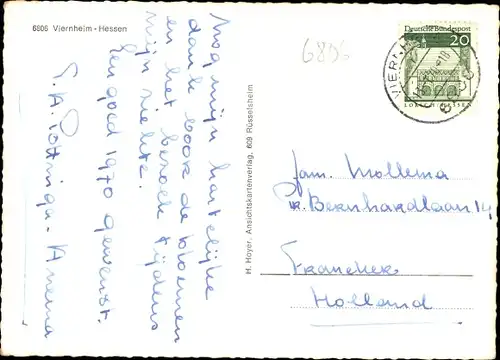 6806 Viernheim - Hessen
6806
Mog mijn hartelijke
dank voor de bloemen
en het bezoek tijdens
mijn ziekte.
Een goed 1970 gewenst.
H. Hoyer, Ansichtskartenverlag, 609 Rüsselsheim
Deutsche Bundespost
20
LORSCH/HESSEN
VIERNH
fam. Mollema
Pr. Bernhardlaan 14
Franeker
Holland